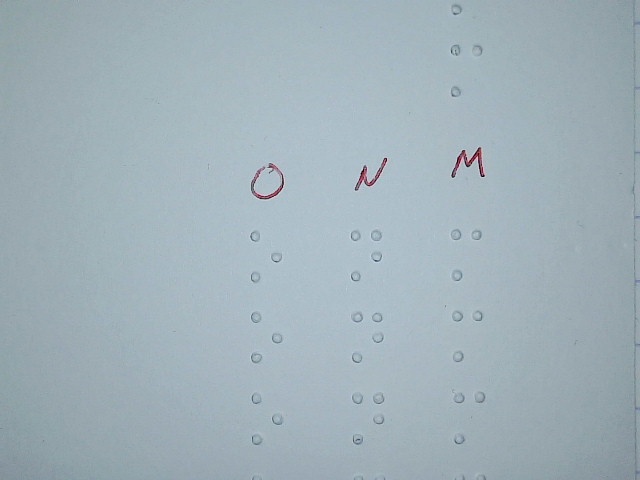 ⠍
O N M
⠕ ⠝ ⠍
⠕ ⠝ ⠍
⠕ ⠝ ⠍